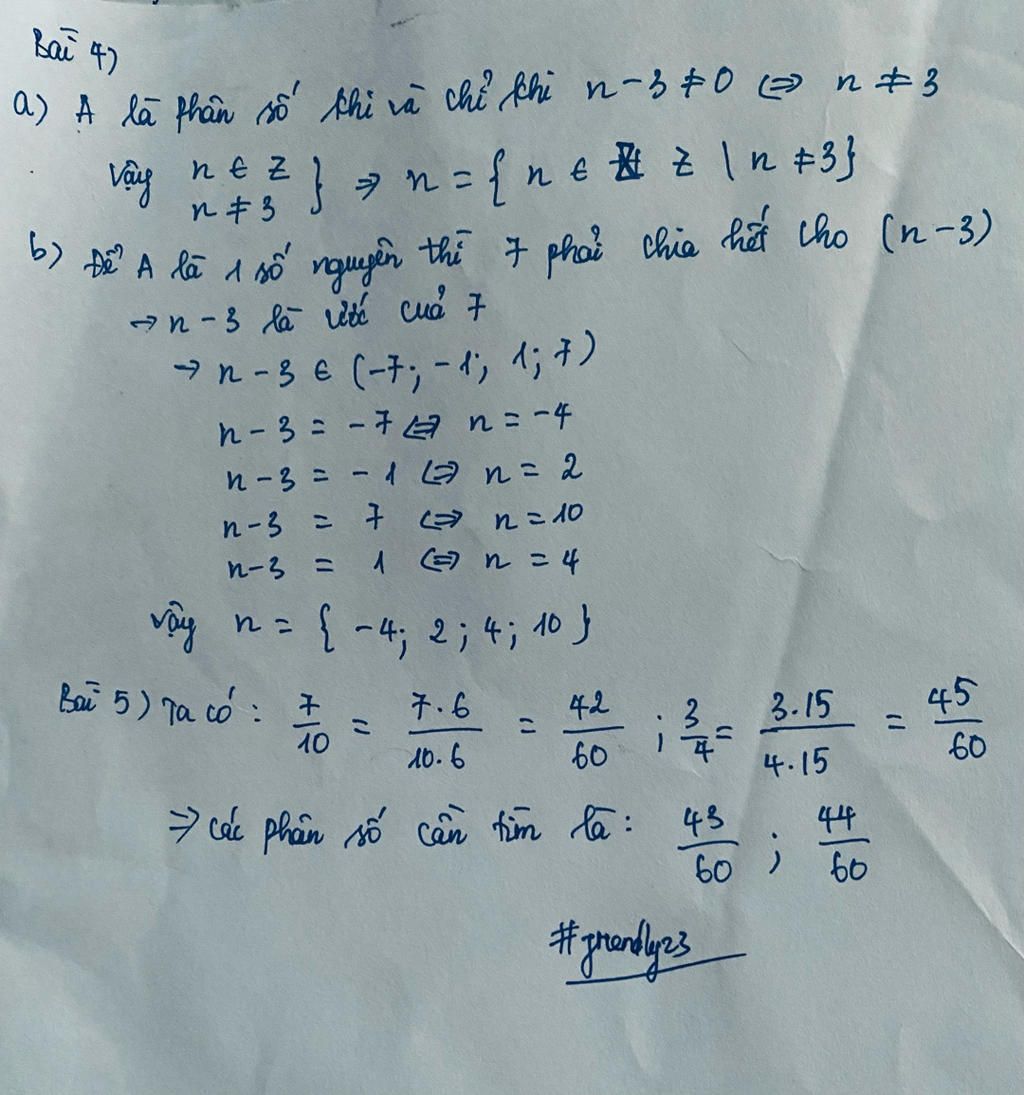 Bài 4)
a) A là phân số khi và chỉ khi n-3 ≠ 0 ⇔ n ≠ 3
Vậy n ∈ Z
n ≠ 3 } ⇒ n = { n ∈ Z | n ≠ 3}
b) Để A là 1 số nguyên thì 7 phải chia hết cho (n-3)
→ n-3 là ước của 7
→ n-3 ∈ (-7; -1; 1; 7)
n-3 = -7 ⇔ n = -4
n-3 = -1 ⇔ n = 2
n-3 = 7 ⇔ n = 10
n-3 = 1 ⇔ n = 4
Vậy n = { -4; 2; 4; 10 }
Bài 5) Ta có: 7/10 = 7.6/10.6 = 42/60 ; 3/4 = 3.15/4.15 = 45/60
⇒ các phân số cần tìm là: 43/60 ; 44/60